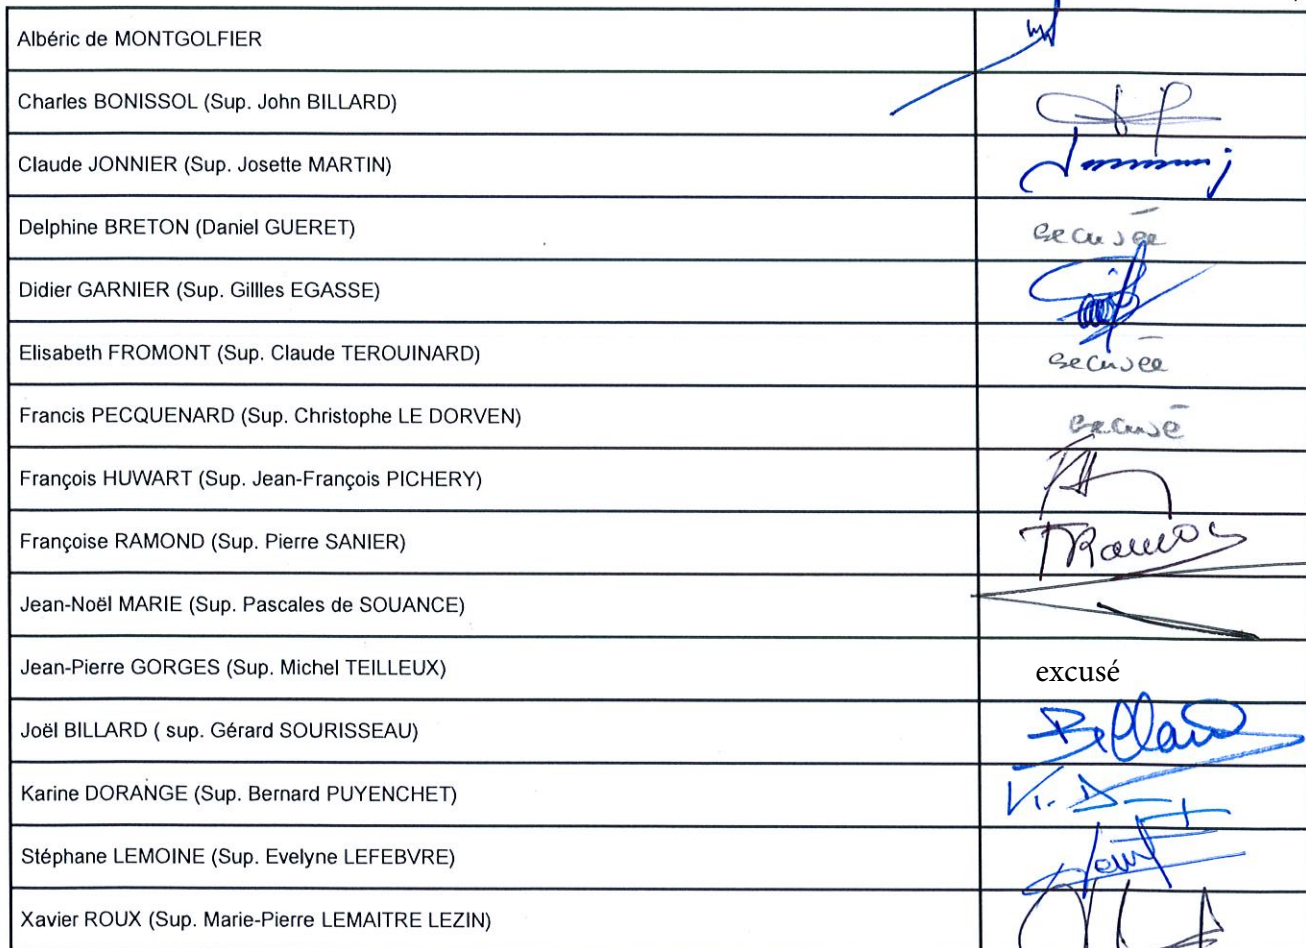 Albéric de MONTGOLFIER
Charles BONISSOL (Sup. John BILLARD)
Claude JONNIER (Sup. Josette MARTIN)
Delphine BRETON (Daniel GUERET)
excusée
Didier GARNIER (Sup. Gillles EGASSE)
Elisabeth FROMONT (Sup. Claude TEROUINARD)
excusée
Francis PECQUENARD (Sup. Christophe LE DORVEN)
excusé
François HUWART (Sup. Jean-François PICHERY)
Françoise RAMOND (Sup. Pierre SANIER)
Jean-Noël MARIE (Sup. Pascales de SOUANCE)
Jean-Pierre GORGES (Sup. Michel TEILLEUX)
excusé
Joël BILLARD ( sup. Gérard SOURISSEAU)
Billard
Karine DORANGE (Sup. Bernard PUYENCHET)
Stéphane LEMOINE (Sup. Evelyne LEFEBVRE)
Xavier ROUX (Sup. Marie-Pierre LEMAITRE LEZIN)